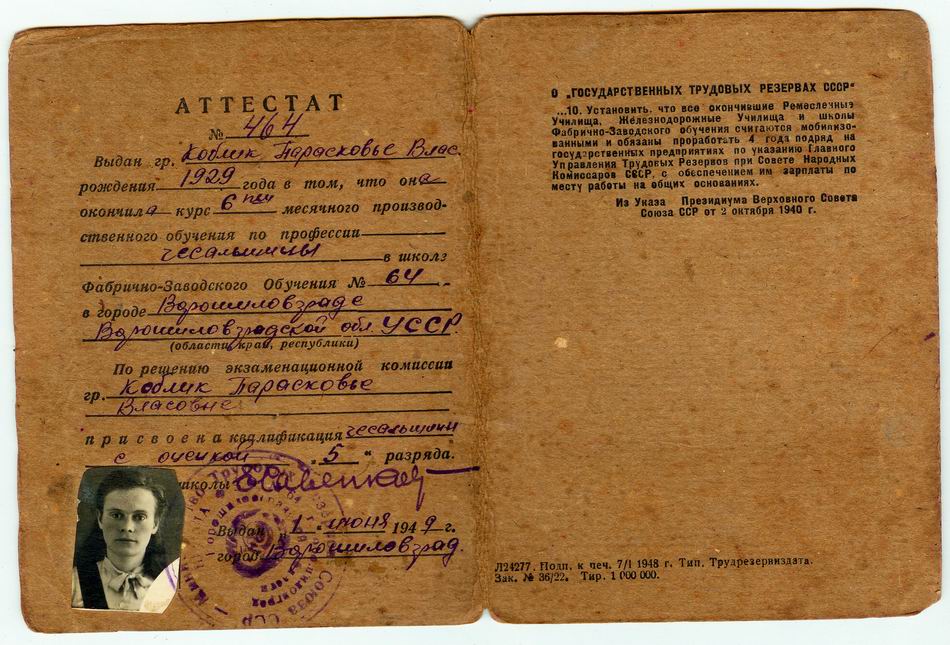 АТТЕСТАТ
№ 464
Выдан гр. Коблик Парасковье Влас.
рождения 1929 года в том, что она
окончила курс 6 ти месячного производ-
ственного обучения по профессии
чесальщицы в школе
Фабрично-Заводского Обучения № 64
в городе Ворошиловграде
Ворошиловградской обл. УССР
(области, край, республики)
По решению экзаменационной комиссии
гр. Коблик Парасковье
Власовне
присвоена квалификация чесальщицы
с оценкой „5“ разряда.
школы
Выдан 1 июня 1949 г.
город Ворошиловград.
О „ГОСУДАРСТВЕННЫХ ТРУДОВЫХ РЕЗЕРВАХ СССР“
...10. Установить, что все окончившие Ремесленные
Училища, Железнодорожные Училища и школы
Фабрично-Заводского обучения считаются мобилизо-
ванными и обязаны проработать 4 года подряд на
государственных предприятиях по указанию Главного
Управления Трудовых Резервов при Совете Народных
Комиссаров СССР, с обеспечением им зарплаты по
месту работы на общих основаниях.
Из Указа Президиума Верховного Совета
Союза ССР от 2 октября 1940 г.
Л24277. Подп. к печ. 7/I 1948 г. Тип. Трудрезервиздата.
Зак. № 36/22. Тир. 1 000 000.